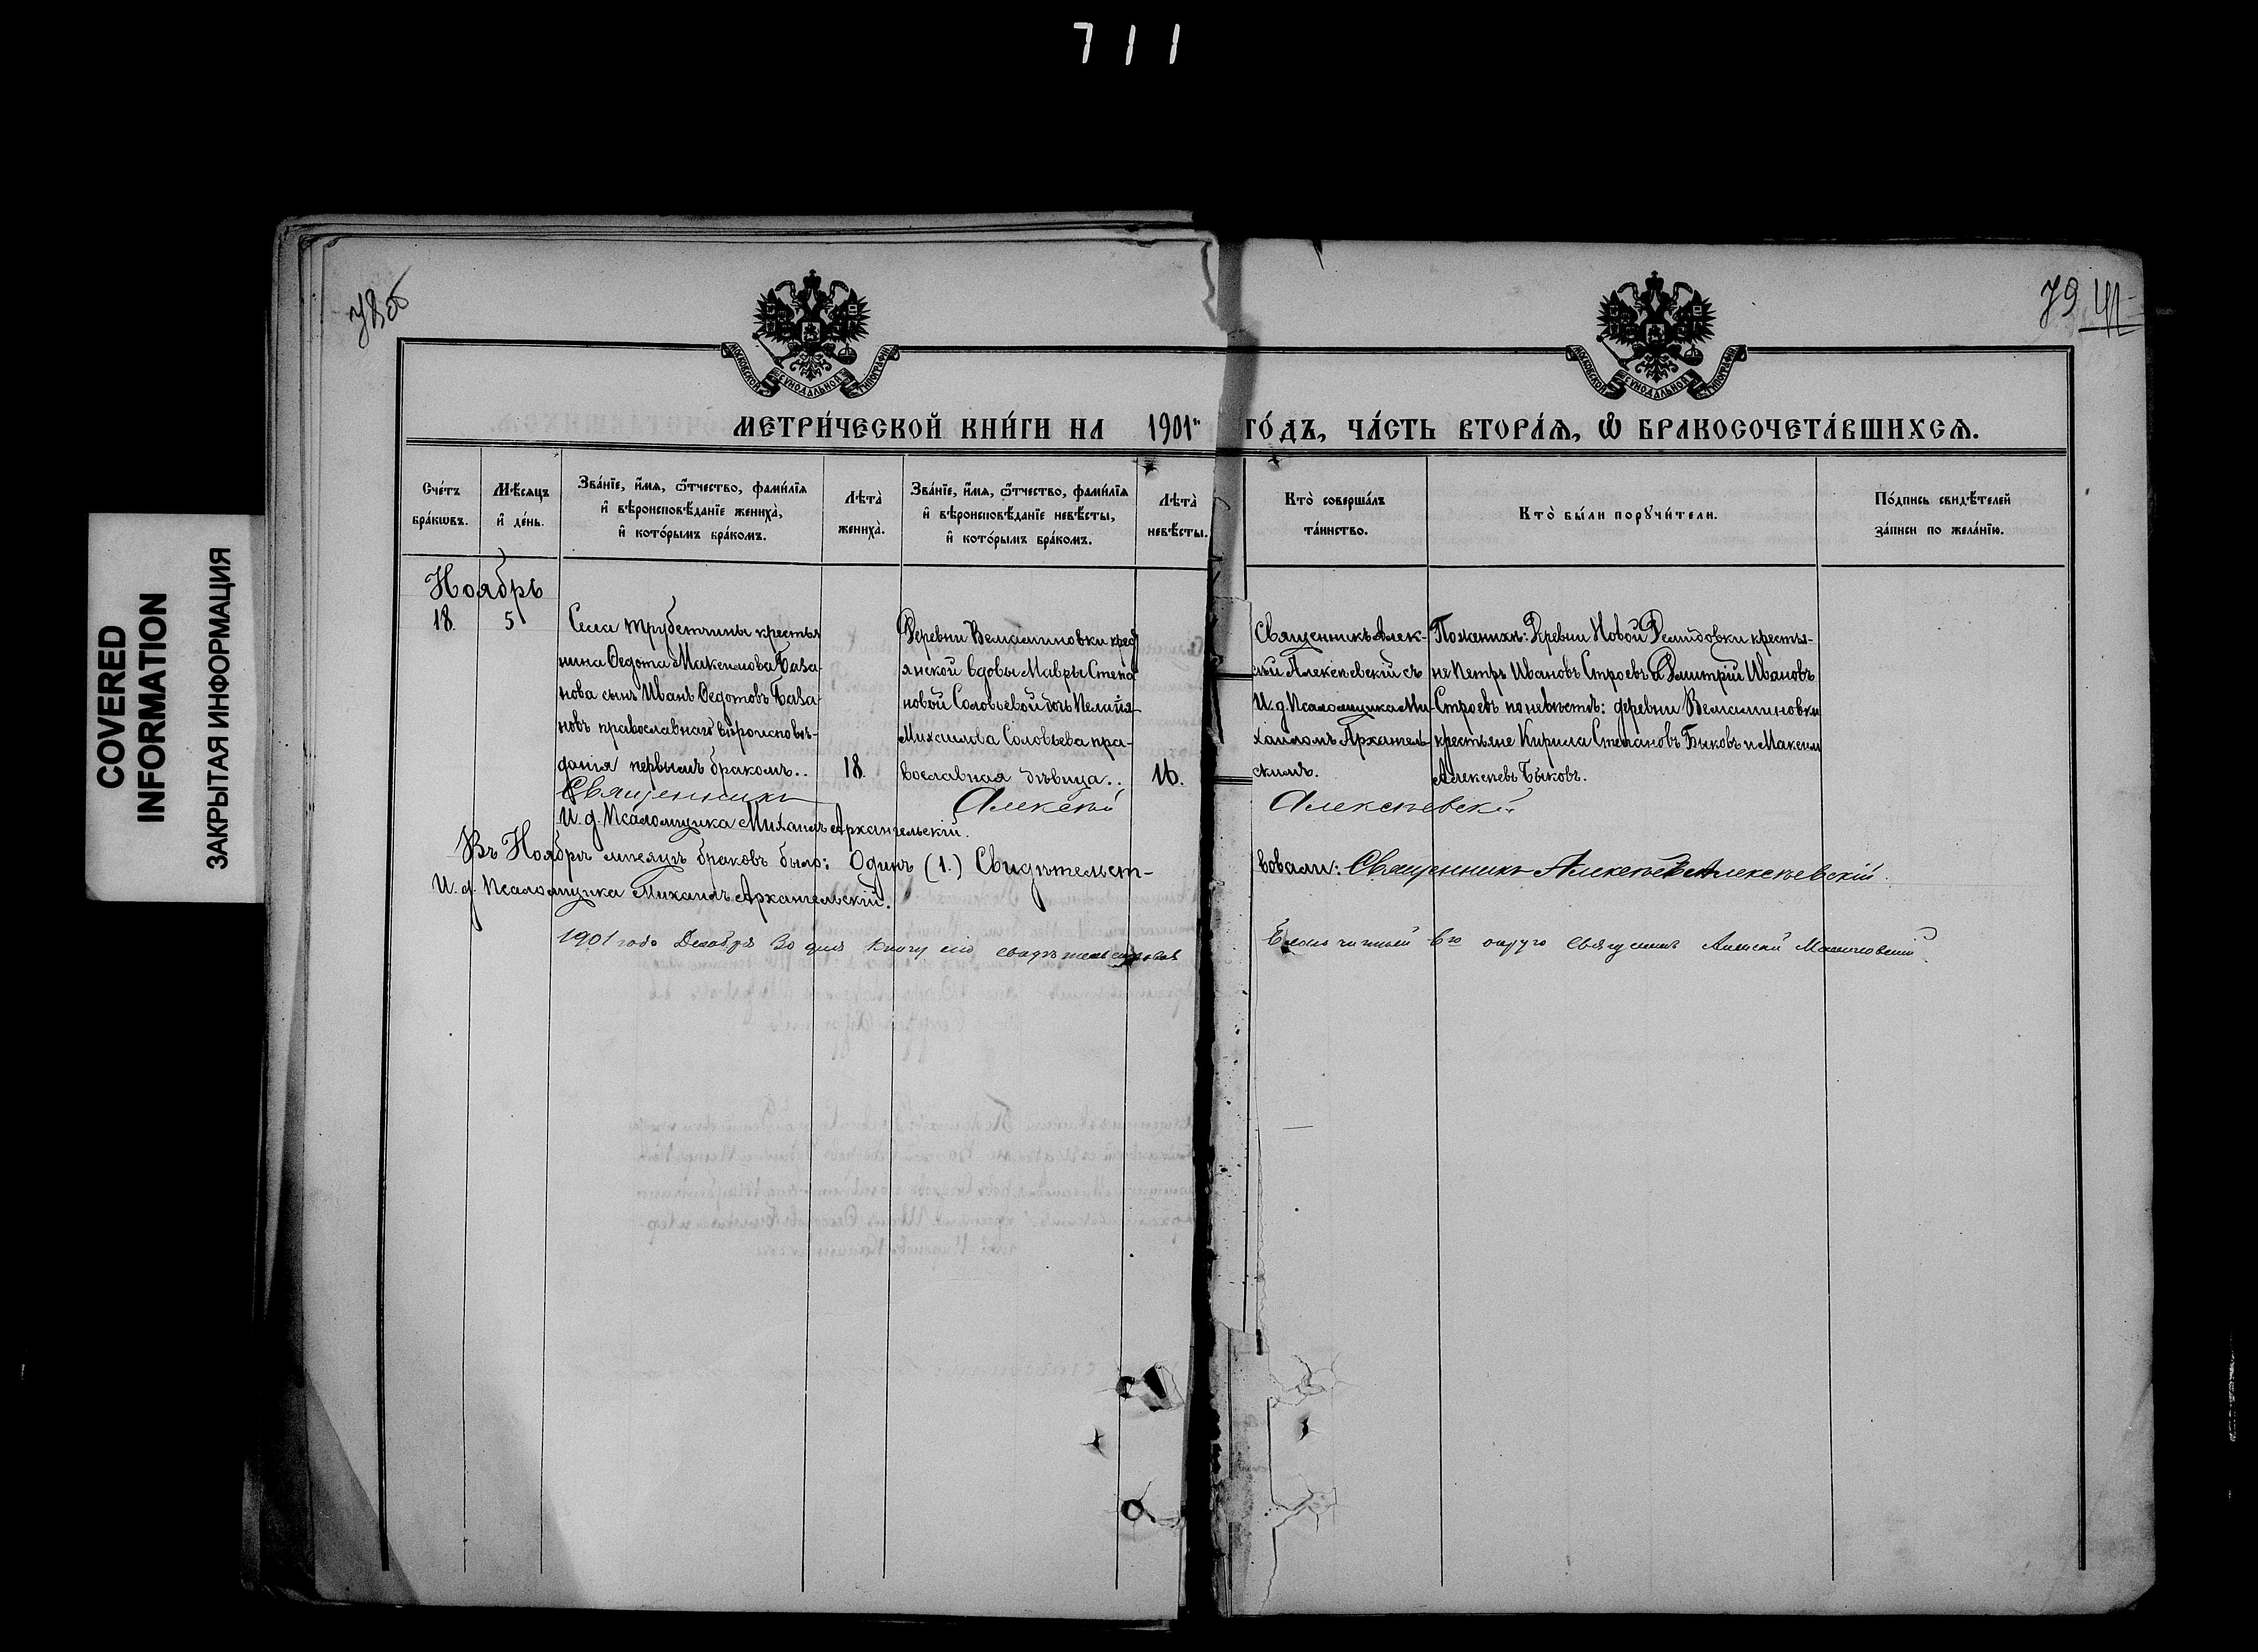 711
COVERED
INFORMATION
ЗАКРЫТАЯ ИНФОРМАЦИЯ
78об
79
МОСКОВСКОЙ СѴНОДАЛЬНОЙ ТИПОГРАФІИ
МОСКОВСКОЙ СѴНОДАЛЬНОЙ ТИПОГРАФІИ
МЕТРИ́ЧЕСКОЙ КНИ́ГИ НА 1901й ГО́ДЪ, ЧА́СТЬ ВТОРА́Ѧ, Ѽ БРАКОСОЧЕТА́ВШИХСѦ.
Сче́тъ бра́кѡвъ.
Мѣ́сяцъ и҆ де́нь.
Зва́нїе, и҆́мѧ, ѻ҆́тчество, фами́лїѧ и҆ вѣроисповѣ́данїе жениха̀, и҆ кото́рымъ бра́комъ.
Лѣта̀ жениха̀.
Зва́нїе, и҆́мѧ, ѻ҆́тчество, фами́лїѧ и҆ вѣроисповѣ́данїе невѣ́сты, и҆ кото́рымъ бра́комъ.
Лѣта̀ невѣ́сты.
Кто̀ соверша́лъ та́инство.
Кто̀ бы́ли порꙋчи́тели.
По́дпись свидѣ́телей за́писи по жела́нїю.
Ноябрь
18.
5
Села Трубетчины крестья
нина Ѳедота Максимова База-
нова сынъ Иванъ Ѳедотовъ База-
новъ православнаго вѣроисповѣ-
данія первымъ бракомъ..
18.
Деревни Вельяминовки крест
янской вдовы Мавры Степа
новой Соловьевой дочь Пелагія
Михаилова Соловьева пра-
вославная дѣвица..
16.
Священникъ Алек-
сѣй Алексѣевскій съ
И. д. Псаломщика Ми-
хаиломъ Архангель-
скимъ.
По женихѣ: Деревни Новой Демидовки крестья-
не Петръ Ивановъ Строевъ и Димитрій Ивановъ
Строевъ по невѣстѣ: деревни Вельяминовки
крестьяне Кирила Степановъ Быковъ и Максим
Алексѣевъ Быковъ.
Священникъ Алексѣй Алексѣевскій
И. д. Псаломщика Михаилъ Архангельскій.
Въ Ноябрѣ мѣсяцѣ браковъ было: Одинъ (1.) Свидѣтельст-
вовали: Священникъ Алексѣй Алексѣевскій.
И. д. Псаломщика Михаилъ Архангельскій.
1901 года Декабря 30 дня книгу сію свидѣтельствовалъ
Благочинный 6го округа священникъ Алексѣй